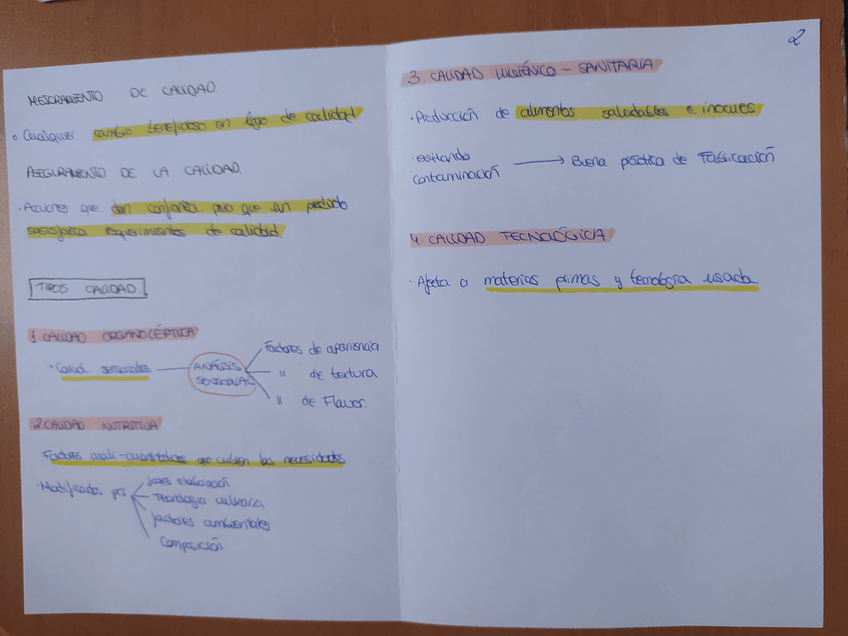 MEJORAMIENTO DE CALIDAD
• Cualquier cambio beneficioso en logro de calidad
ASEGURAMIENTO DE LA CALIDAD.
• Acciones que dan confianza para que un producto
satisfaga requerimientos de calidad.
TIPOS CALIDAD
1. CALIDAD ORGANOLÉPTICA
• sensoriales — ANÁLISIS
SENSORIAL
Factores de apariencia
" de textura
" de Flavor.
2. CALIDAD NUTRITIVA
Factores cuali-cuantitativos que cubren las necesidades
• Modificados por
elaboración
Tecnología culinaria
factores ambientales
Composición
2
3. CALIDAD HIGIÉNICO - SANITARIA
• Producción de alimentos saludables e inocuos
• evitando
contaminación → Buena práctica de Fabricación
4. CALIDAD TECNOLÓGICA
• Afecta a materias primas y tecnología usada